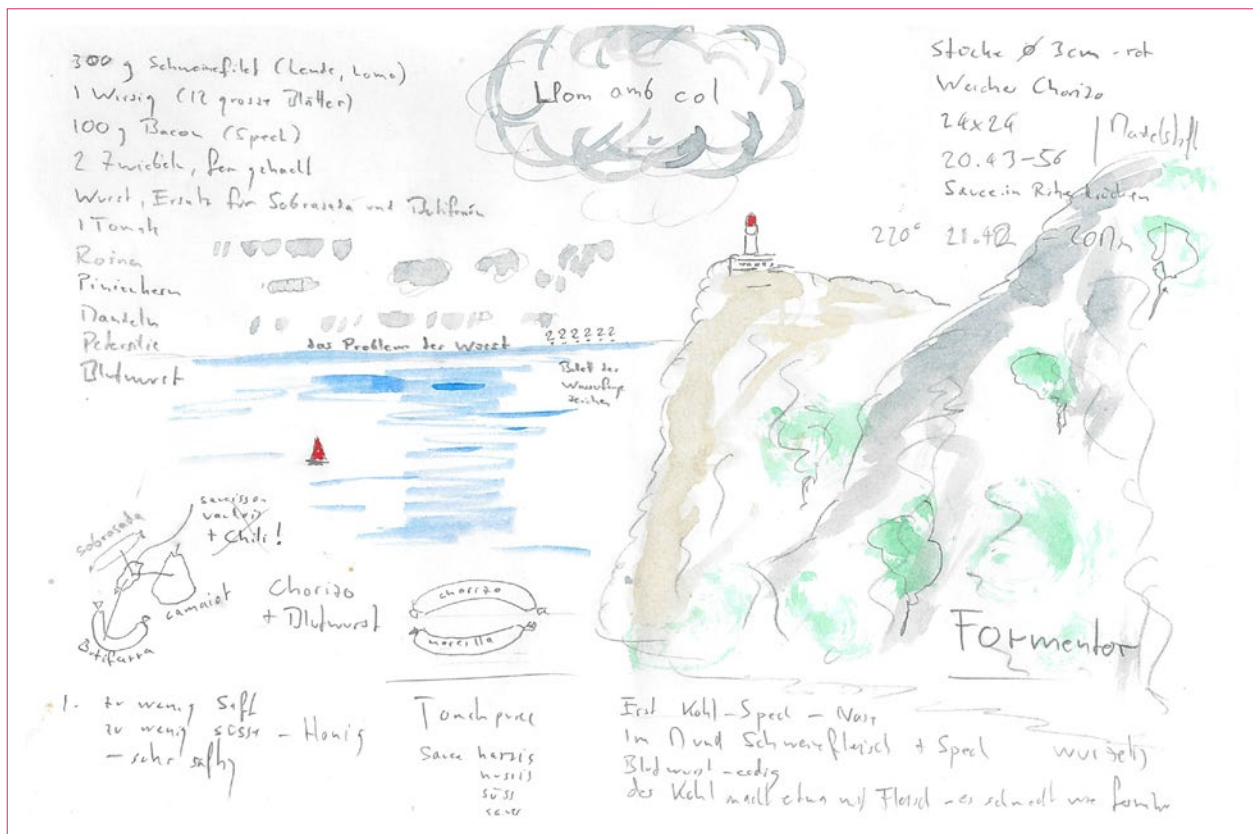 300 g Schweinefilet (Lende, Lomo)
1 Wirsig (12 grosse Blätter)
100 g Bacon (Speck)
2 Zwiebeln, fein gehackt
Wurst, Ersatz für Sobrasada und Butifarra
1 Tomate
Rosinen
Pinienkern
Mandeln
Petersilie
Blutwurst
Llom amb col
Stücke Ø 3cm - rot
Weicher Chorizo
24x24
20.43-56
Sauce in Ritze drücken
220° 21.42 - 20 Min
das Problem der Wurst
? ? ? ? ? ?
Ballett der
zeichen
sobrasada
saucisson
vaudois
+ Chili!
camaiot
Butifarra
Chorizo
+ Blutwurst
chorizo
morcilla
Formentor
1. zu wenig Saft
zu wenig süsse - Honig
- sehr saftig
Tomatpuree
Sauce harzig
nussig
süss
sauer
Erst Kohl-Speck - Nase
Im Mund Schweinefleisch + Speck
wurzelig
Blutwurst - erdig
der Kohl macht etwas mit Fleisch - es schmeckt wie